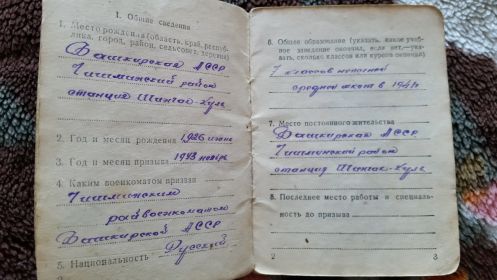 1. Общие сведения
1. Место рождения (область, край, респуб-
лика, город, район, сельсовет, деревня)
Башкирская АССР
Чишминский район
станция Шингак-Куль
2. Год и месяц рождения 1926 июнь
3. Год и месяц призыва 1943 ноябрь
4. Каким военкоматом призван
Чишминским
райвоенкоматом
Башкирской АССР
5. Национальность Русский
2
6. Общее образование (указать, какое учеб-
ное заведение окончил, если нет,—ука-
зать, сколько классов или курсов окончил)
7 классов неполной
средней школы в 194
7. Место постоянного жительства
Башкирская АССР
Чишминский район
станция Шингак-Куль
8. Последнее место работы и специаль-
ность до призыва
3